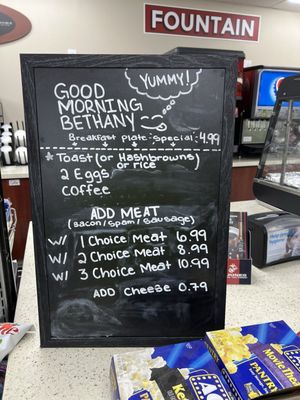 FOUNTAIN
YUMMY!
GOOD
MORNING
BETHANY
Breakfast plate special 4.99
* Toast (or Hashbrowns)
or rice
2 Eggs
Coffee
ADD MEAT
(bacon/spam/sausage)
W/ 1 Choice Meat 6.99
W/ 2 Choice Meat 8.99
W/ 3 Choice Meat 10.99
ADD Cheese 0.79
Movie Theater
PANTRY